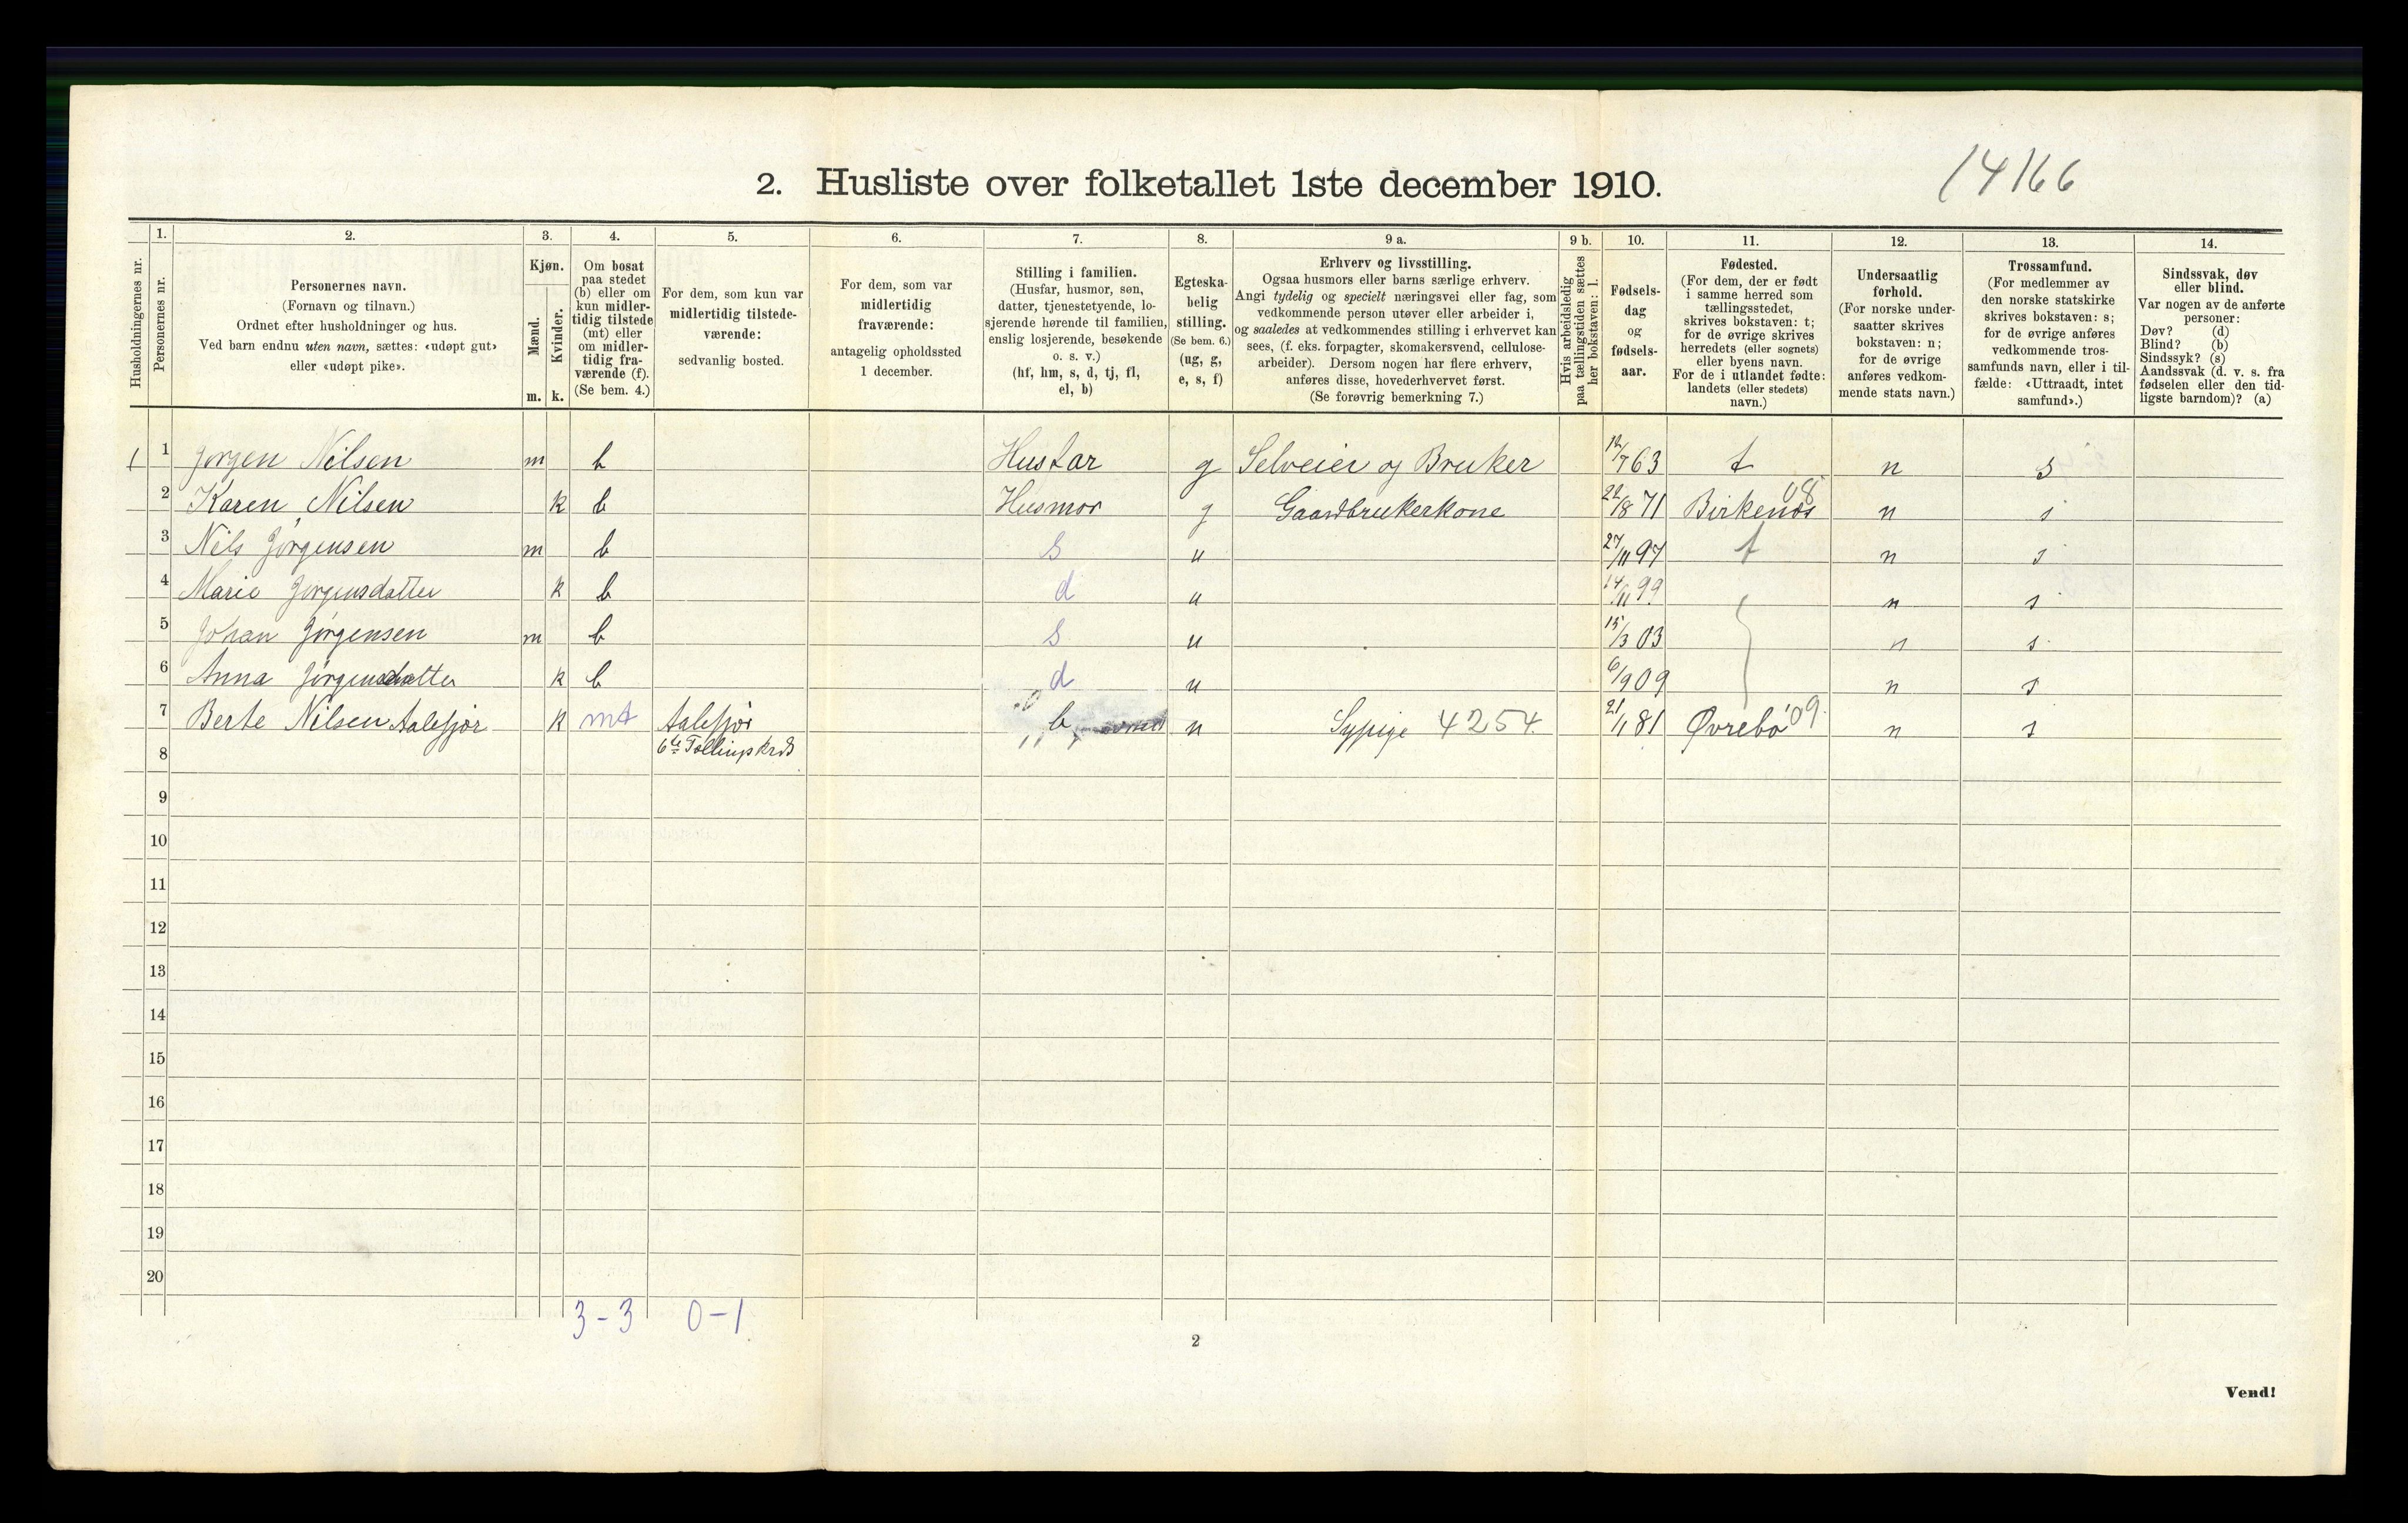 14166
2. Husliste over folketallet 1ste december 1910.
Husholdningernes nr.
1. Personernes nr.
2. Personernes navn.
(Fornavn og tilnavn.)
Ordnet efter husholdninger og hus.
Ved barn endnu uten navn, sættes: «udøpt gut»
eller «udøpt pike».
3. Kjøn.
Mænd. m.
Kvinder. k.
4. Om bosat
paa stedet
(b) eller om
kun midler-
tidig tilstede
(mt) eller
om midler-
tidig fra-
værende (f).
(Se bem. 4.)
5. For dem, som kun var
midlertidig tilstede-
værende:
sedvanlig bosted.
6. For dem, som var
midlertidig
fraværende:
antagelig opholdssted
1 december.
7. Stilling i familien.
(Husfar, husmor, søn,
datter, tjenestetyende, lo-
sjerende hørende til familien,
enslig losjerende, besøkende
o. s. v.)
(hf, hm, s, d, tj, fl,
el, b)
8. Egteska-
belig
stilling.
(Se bem. 6.)
(ug, g,
e, s, f)
9 a. Erhverv og livsstilling.
Ogsaa husmors eller barns særlige erhverv.
Angi tydelig og specielt næringsvei eller fag, som
vedkommende person utøver eller arbeider i,
og saaledes at vedkommendes stilling i erhvervet kan
sees, (f. eks. forpagter, skomakersvend, cellulose-
arbeider). Dersom nogen har flere erhverv,
anføres disse, hovederhvervet først.
(Se forøvrig bemerkning 7.)
9 b. Hvis arbeidsledig
paa tællingstiden sættes
her bokstaven: l.
10. Fødsels-
dag
og
fødsels-
aar.
11. Fødested.
(For dem, der er født
i samme herred som
tællingsstedet,
skrives bokstaven: t;
for de øvrige skrives
herredets (eller sognets)
eller byens navn.
For de i utlandet fødte:
landets (eller stedets)
navn.)
12. Undersaatlig
forhold.
(For norske under-
saatter skrives
bokstaven: n;
for de øvrige
anføres vedkom-
mende stats navn.)
13. Trossamfund.
(For medlemmer av
den norske statskirke
skrives bokstaven: s;
for de øvrige anføres
vedkommende tros-
samfunds navn, eller i til-
fælde: «Uttraadt, intet
samfund».)
14. Sindssvak, døv
eller blind.
Var nogen av de anførte
personer:
Døv? (d)
Blind? (b)
Sindssyk? (s)
Aandssvak (d. v. s. fra
fødselen eller den tid-
ligste barndom)? (a)
1 1 Jørgen Nilsen m b Husfar g Selveier og Bruker 12/7 63 t n s
2 Karen Nilsen k b Husmor g Gaardbrukerkone 22/8 71 Birkenæs 08 n s
3 Nils Jørgensen m b s u 27/11 97 t n s
4 Marie Jørgensdatter k b d u 14/11 99 n s
5 Johan Jørgensen m b s u 15/3 03 n s
6 Anna Jørgensdatter k b d u 6/9 09 n s
7 Berte Nilsen Aalefjør k mt Aalefjør b u Sypige 4254 21/1 81 Øvrebø 09 n s
8 6te Tællingskrds
9
10
11
12
13
14
15
16
17
18
19
20
3-3 0-1
2
Vend!